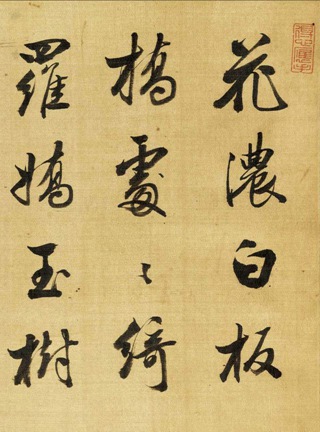 花濃白板
橋處〻綺
羅嬌玉樹